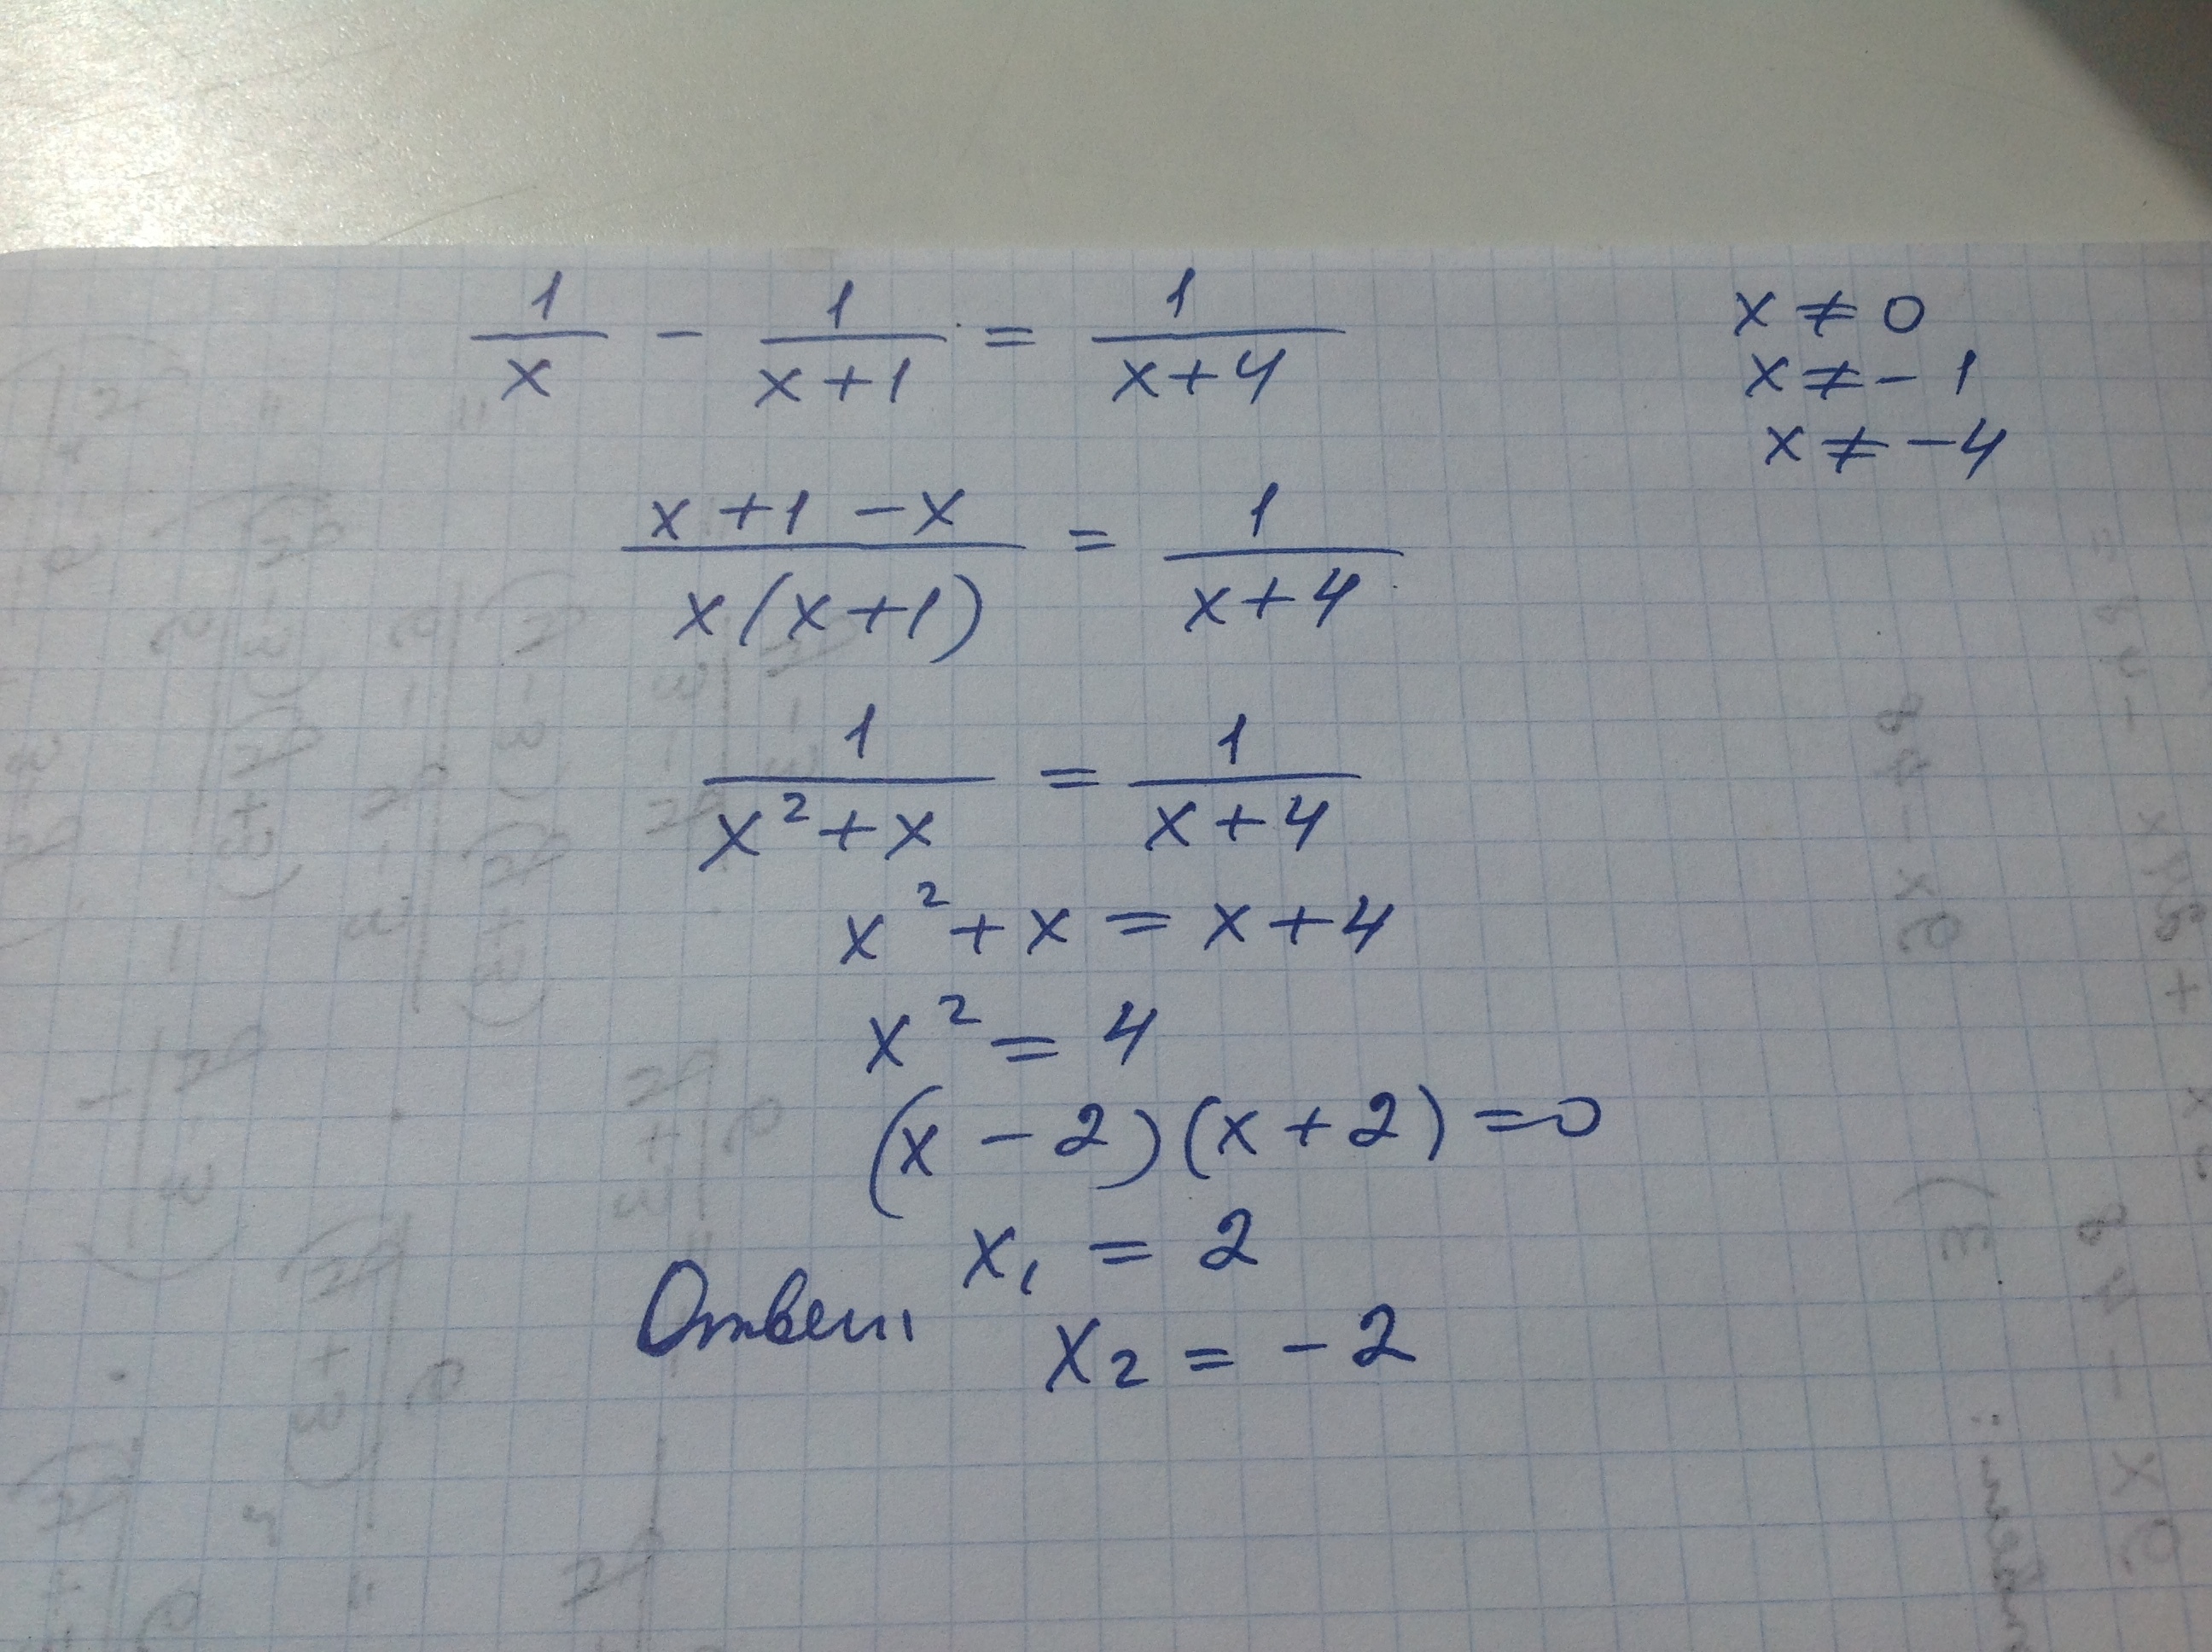 1/x - 1/(x+1) = 1/(x+4)
x ≠ 0
x ≠ -1
x ≠ -4
(x+1-x)/(x(x+1)) = 1/(x+4)
1/(x²+x) = 1/(x+4)
x²+x = x+4
x² = 4
(x-2)(x+2)=0
x₁ = 2
Ответ x₂ = -2